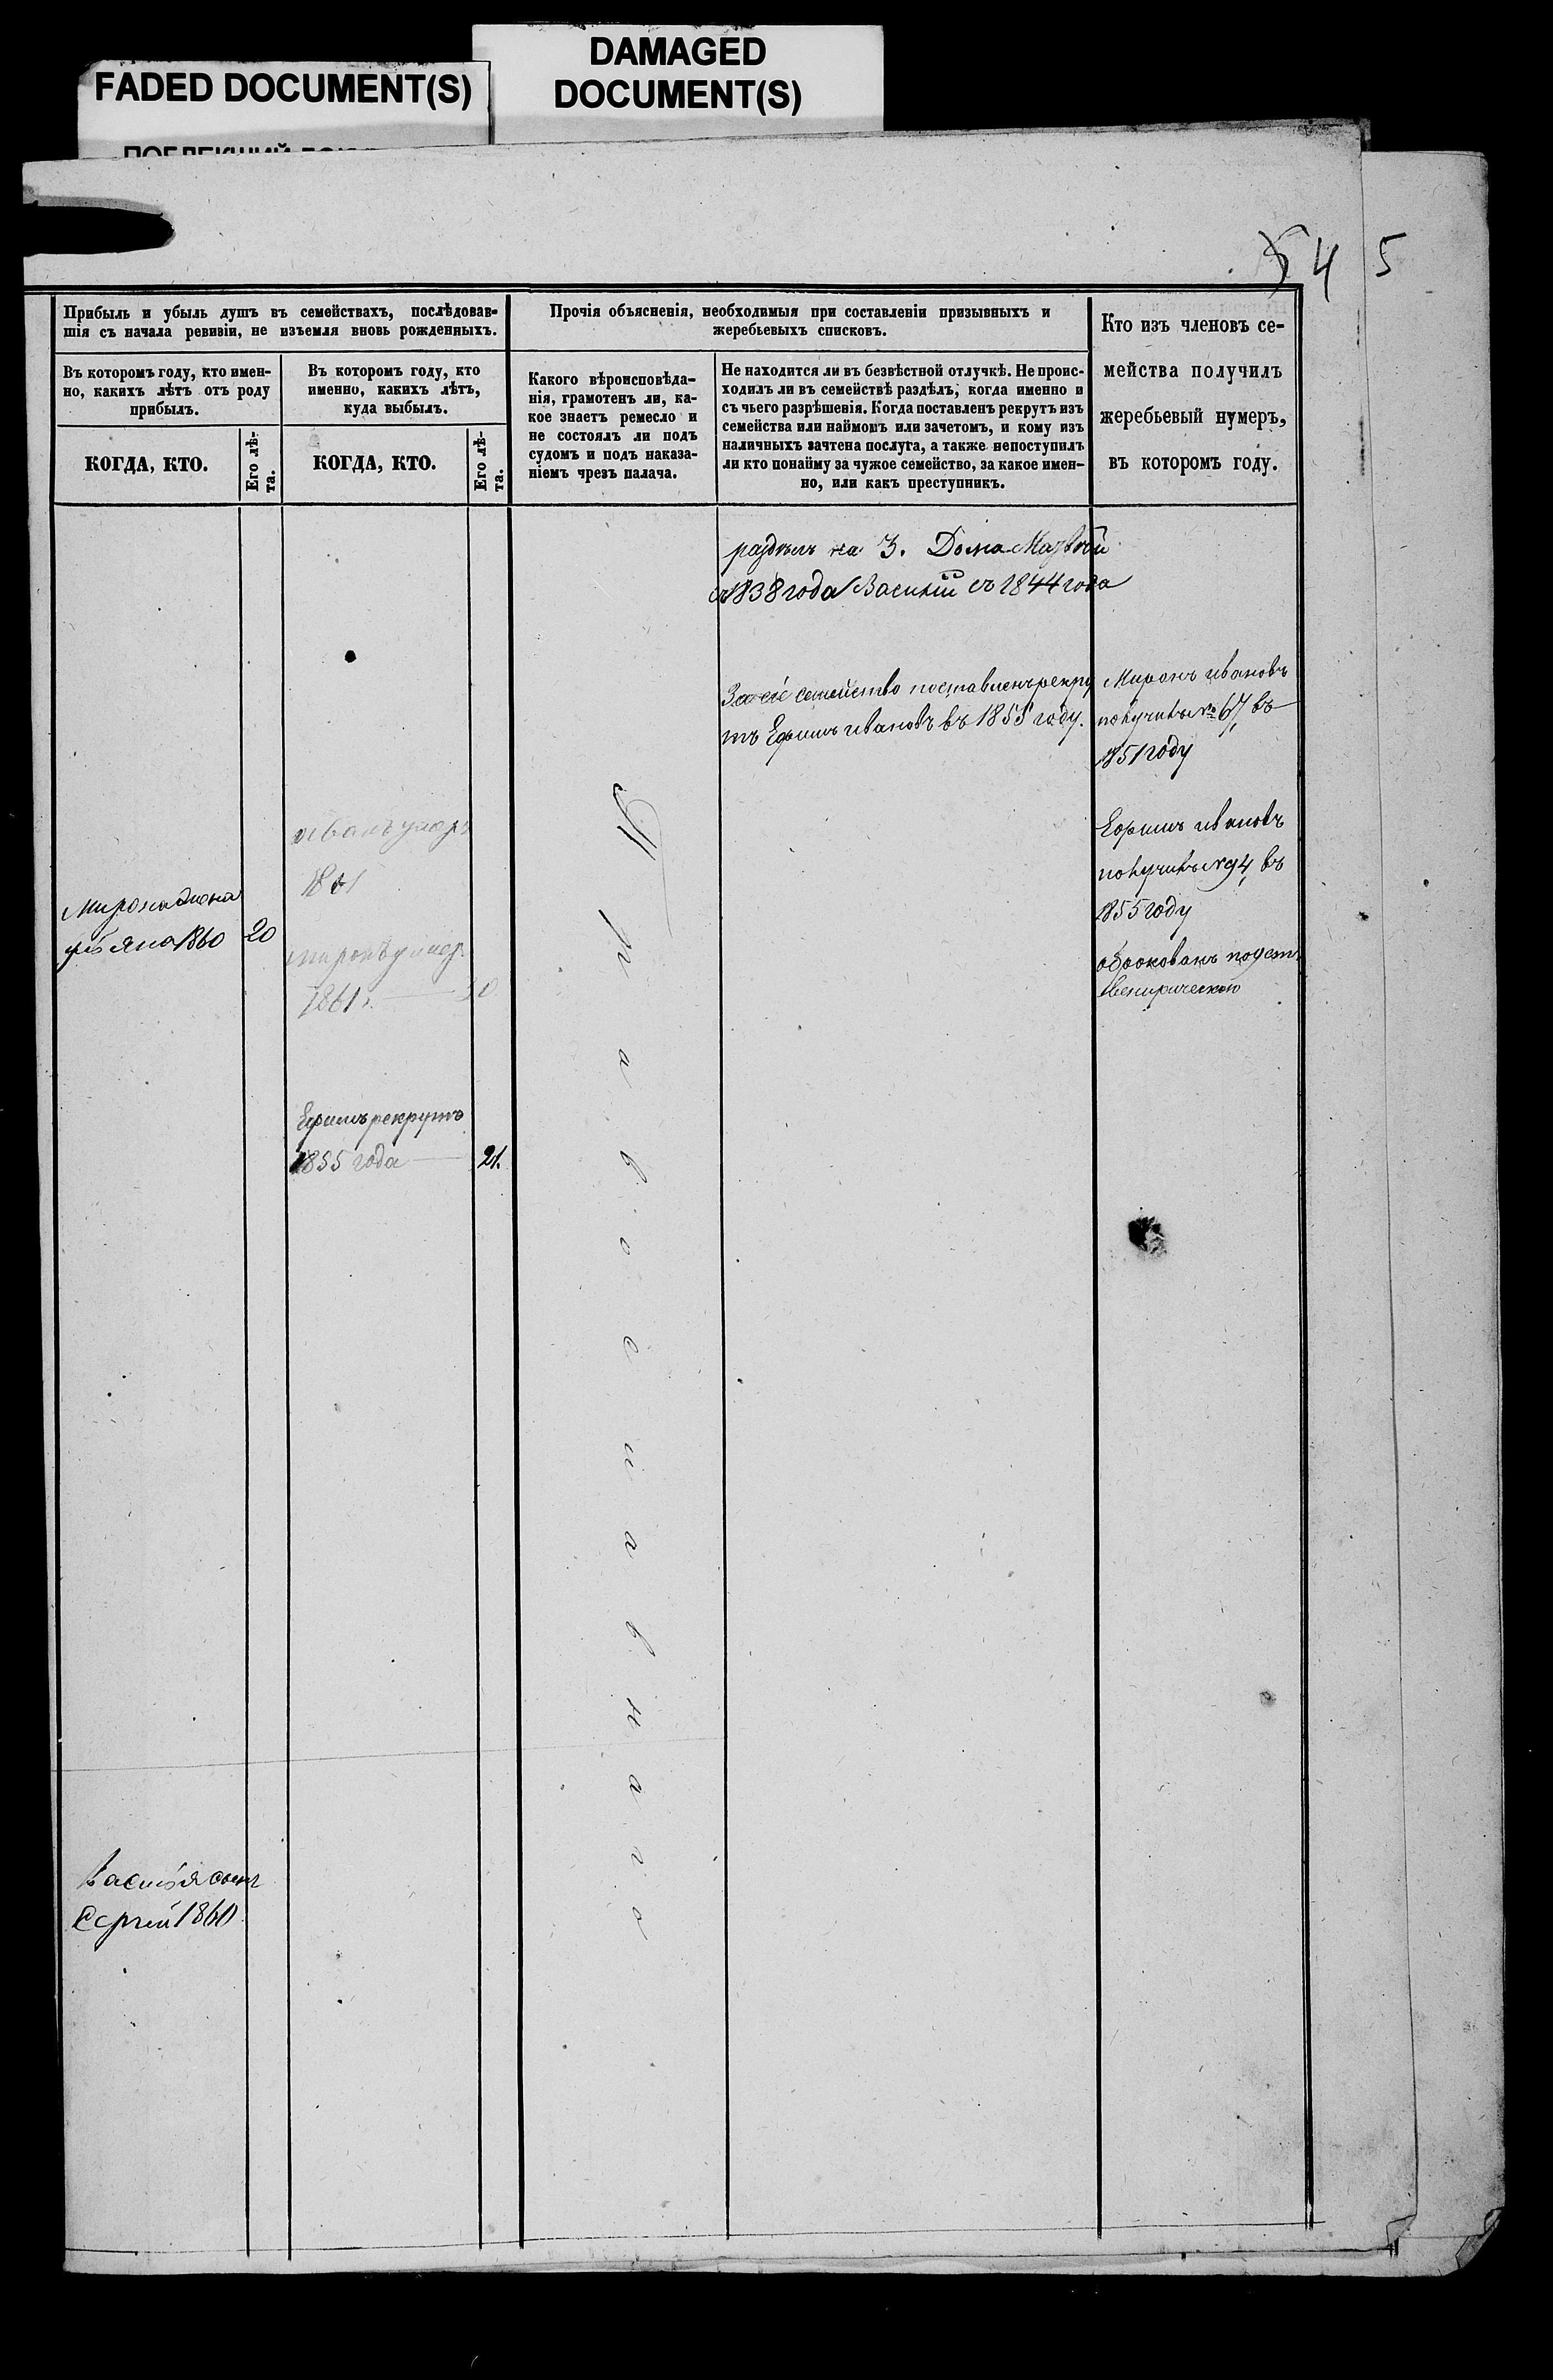 DAMAGED
DOCUMENT(S)
FADED DOCUMENT(S)
5 4 5
Прибыль и убыль душъ въ семействахъ, послѣдовав-
шія съ начала ревизіи, не изъемля вновь рожденныхъ.
Въ которомъ году, кто имен-
но, какихъ лѣтъ отъ роду
прибылъ.
Въ которомъ году, кто
именно, какихъ лѣтъ,
куда выбылъ.
КОГДА, КТО.
Его лѣ-
та.
КОГДА, КТО.
Его лѣ-
та.
Прочія объясненія, необходимыя при составленіи призывныхъ и
жеребьевыхъ списковъ.
Какого вѣроисповѣда-
нія, грамотенъ ли, ка-
кое знаетъ ремесло и
не состоялъ ли подъ
судомъ и подъ наказа-
ніемъ чрезъ палача.
Не находится ли въ безвѣстной отлучкѣ. Не проис-
ходилъ ли въ семействѣ раздѣлъ, когда именно и
съ чьего разрѣшенія. Когда поставленъ рекрутъ изъ
семейства или наймомъ или зачетомъ, и кому изъ
наличныхъ зачтена послуга, а также непоступилъ
ли кто понайму за чужое семейство, за какое имен-
но, или какъ преступникъ.
Кто изъ членовъ се-
мейства получилъ
жеребьевый нумеръ,
въ которомъ году.
раздѣлъ на 3. Дома Матвѣй
съ 1838 года Василій съ 1844 года
За сіе семейство поставленъ рекру
тъ Ефимъ ивановъ въ 1855 году.
Миронъ ивановъ
получилъ № 67, въ
1851 году
Ефимъ ивановъ
получилъ № 94, въ
1855 году
иванъ умеръ
1861
Мирона жена
1860 20
миронъ умеръ
1861. 30
Ефимъ рекрутъ
1855 года 21.
Православнаго
Василья сынъ
Сергѣй 1860